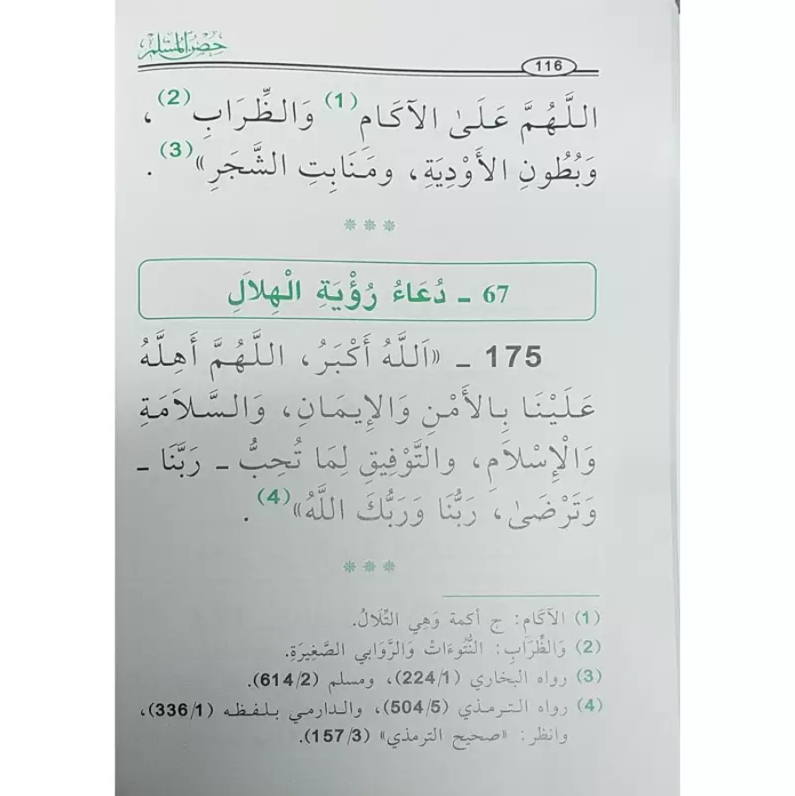 حِصْنُ المُسْلِم
116
اللَّهُمَّ عَلَىٰ الآكَامِ (1) وَالظِّرَابِ (2)،
وَبُطُونِ الأَوْدِيَةِ، ومَنَابِتِ الشَّجَرِ» (3).
67 ـ دُعَاءُ رُؤْيَةِ الْهِلالِ
175 ـ «اَللَّهُ أَكْبَرُ، اللَّهُمَّ أَهِلَّهُ
عَلَيْنَا بِالأَمْنِ وَالإِيمَانِ، وَالسَّلاَمَةِ
وَالْإِسْلاَمِ، والتَّوْفِيقِ لِمَا تُحِبُّ ـ رَبَّنَا ـ
وَتَرْضَىٰ، رَبُّنَا وَرَبُّكَ اللَّهُ» (4).
(1) الآكَام: ج أكمة وَهِي التِّلَالُ.
(2) وَالظِّرَابِ: النُّتُوءَاتُ وَالرَّوَابي الصَّغِيرَةِ.
(3) رواه البخاري (224/1)، ومسلم (614/2).
(4) رواه الترمذي (504/5)، والدارمي بلفظه (336/1)،
وانظر: «صحيح الترمذي» (157/3).